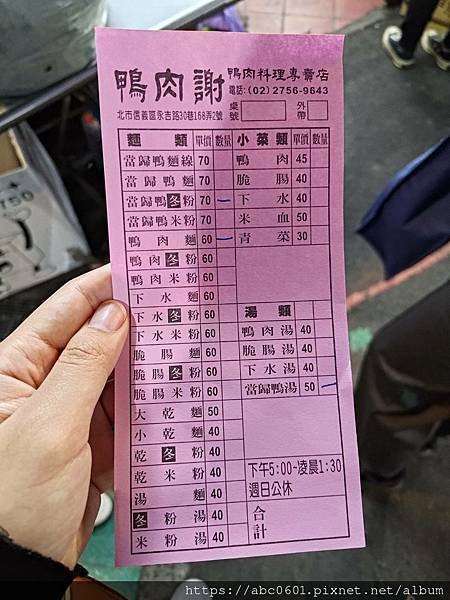 鴨肉謝 鴨肉料理專賣店
電話:(02)2756-9643
北市信義區永吉路30巷168弄2號
桌號 外帶
麵類 單價 數量
當歸鴨麵線 70
當歸鴨麵 70
當歸鴨冬粉 70
當歸鴨米粉 70
鴨肉麵 60
鴨肉冬粉 60
鴨肉米粉 60
下水麵 60
下水冬粉 60
下水米粉 60
脆腸麵 60
脆腸冬粉 60
脆腸米粉 60
大乾麵 50
小乾麵 40
乾冬粉 40
乾米粉 40
湯麵 40
冬粉湯 40
米粉湯 40
小菜類 單價 數量
鴨肉 45
脆腸 40
下水 40
米血 50
青菜 30
湯類
鴨肉湯 40
脆腸湯 40
下水湯 40
當歸鴨湯 50
下午5:00~凌晨1:30
週日公休
合計
https://abc0601.pixnet.net/album